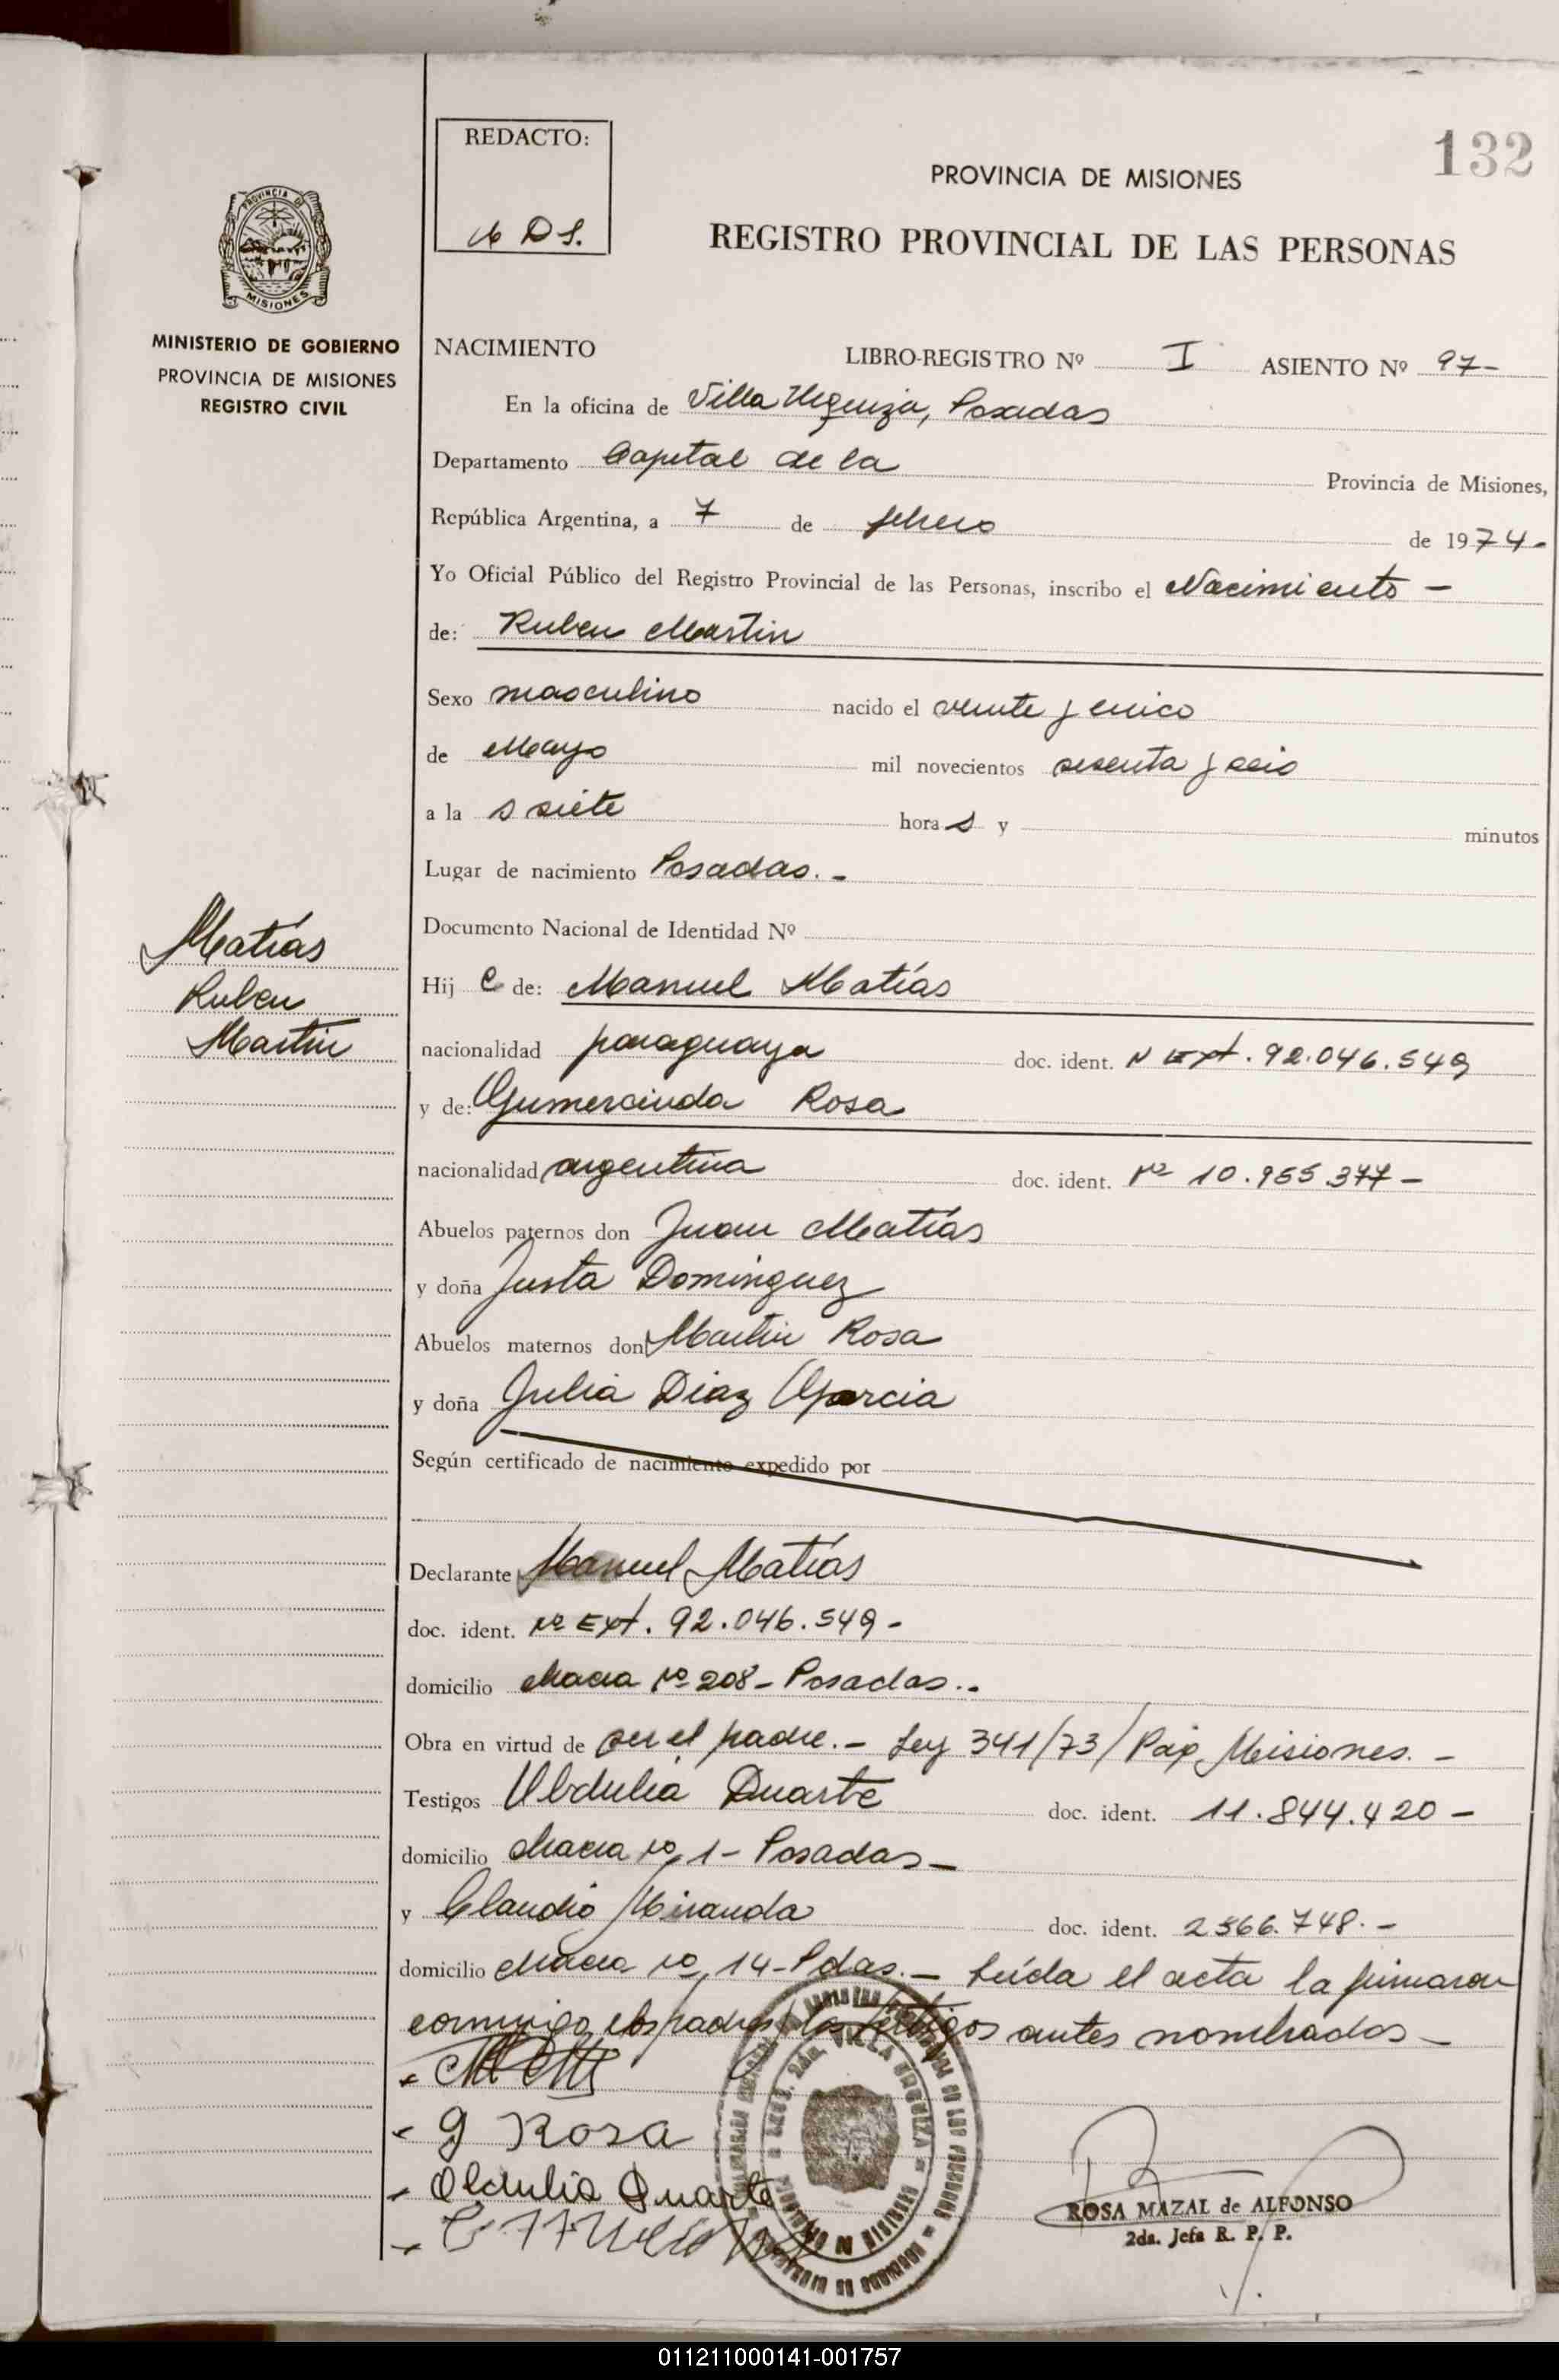 132
REDACTO:
PROVINCIA DE MISIONES
REGISTRO PROVINCIAL DE LAS PERSONAS
PROVINCIA DE
MISIONES
MINISTERIO DE GOBIERNO
PROVINCIA DE MISIONES
REGISTRO CIVIL
NACIMIENTO LIBRO-REGISTRO Nº I ASIENTO Nº 97-
En la oficina de Villa Urquiza, Posadas
Departamento Capital de la Provincia de Misiones,
República Argentina, a 7 de febrero de 1974-
Yo Oficial Público del Registro Provincial de las Personas, inscribo el Nacimiento -
de: Ruben Martin
Sexo masculino nacido el veinte y cinco
de Mayo mil novecientos sesenta y seis
a la s siete hora s y minutos
Lugar de nacimiento Posadas.-
Documento Nacional de Identidad Nº
Matías
Ruben
Martin
Hij o de: Manuel Matías
nacionalidad paraguaya doc. ident. Nº Ext. 92.046.549
y de: Gumercinda Rosa
nacionalidad argentina doc. ident. Nº 10.955.377-
Abuelos paternos don Juan Matías
y doña Justa Dominguez
Abuelos maternos don Martin Rosa
y doña Julia Diaz Garcia
Según certificado de nacimiento expedido por
Declarante Manuel Matías
doc. ident. Nº Ext. 92.046.549-
domicilio chacra Nº 208- Posadas.-
Obra en virtud de ser el padre.- Ley 341/73/ Misiones.-
Testigos Obdulia Duarte doc. ident. 11.844.420-
domicilio chacra Nº 1- Posadas-
y Claudio Miranda doc. ident. 2366.748.-
domicilio chacra Nº 14-Pdas.- Leída el acta la firmaron
conmigo los padres y los testigos antes nombrados-
G Rosa
Obdulia Duarte
VILLA URQUIZA
ROSA MAZAL de ALFONSO
2da. Jefa R. P. P.
011211000141-001757